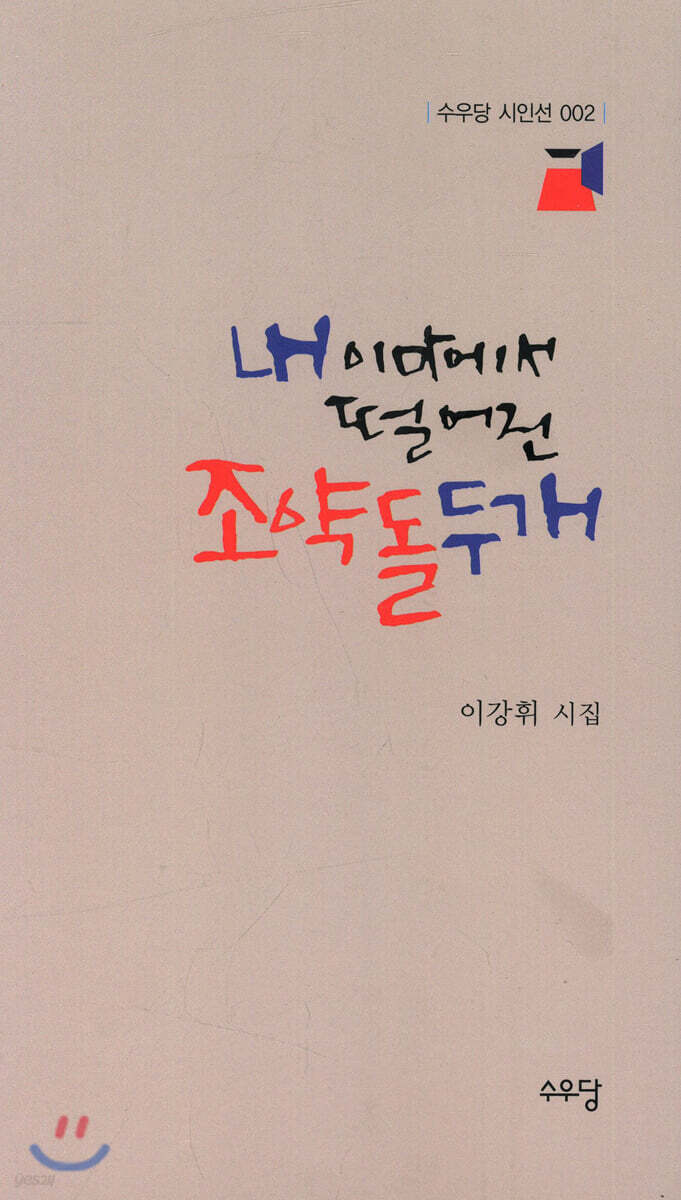 | 수우당 시인선 002 |
내 이마에서
떨어진
조약돌 두 개
이강휘 시집
수우당
yes24